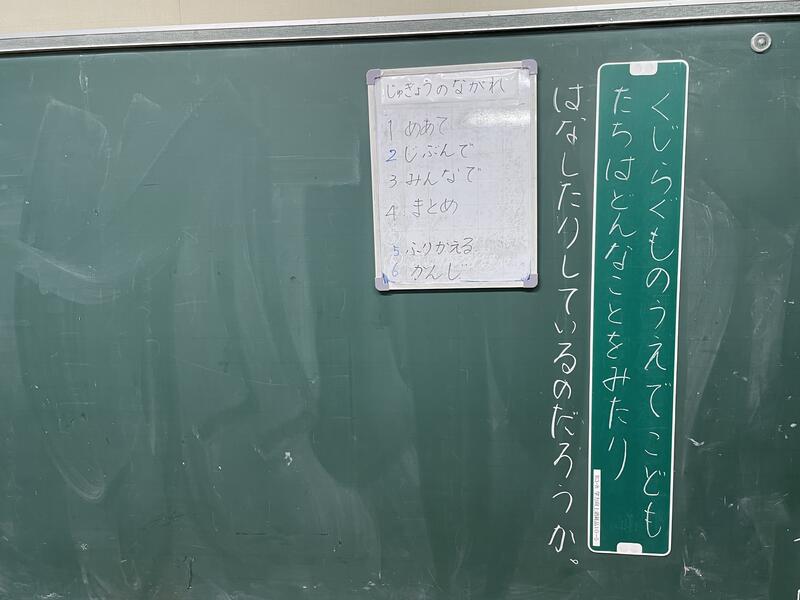 くじらぐものうえでこども
たちはどんなことをみたり
はなしたりしているのだろうか。
じゅぎょうのながれ
1 めあて
2 じぶんで
3 みんなで
4 まとめ
5 ふりかえる
6 かんじ